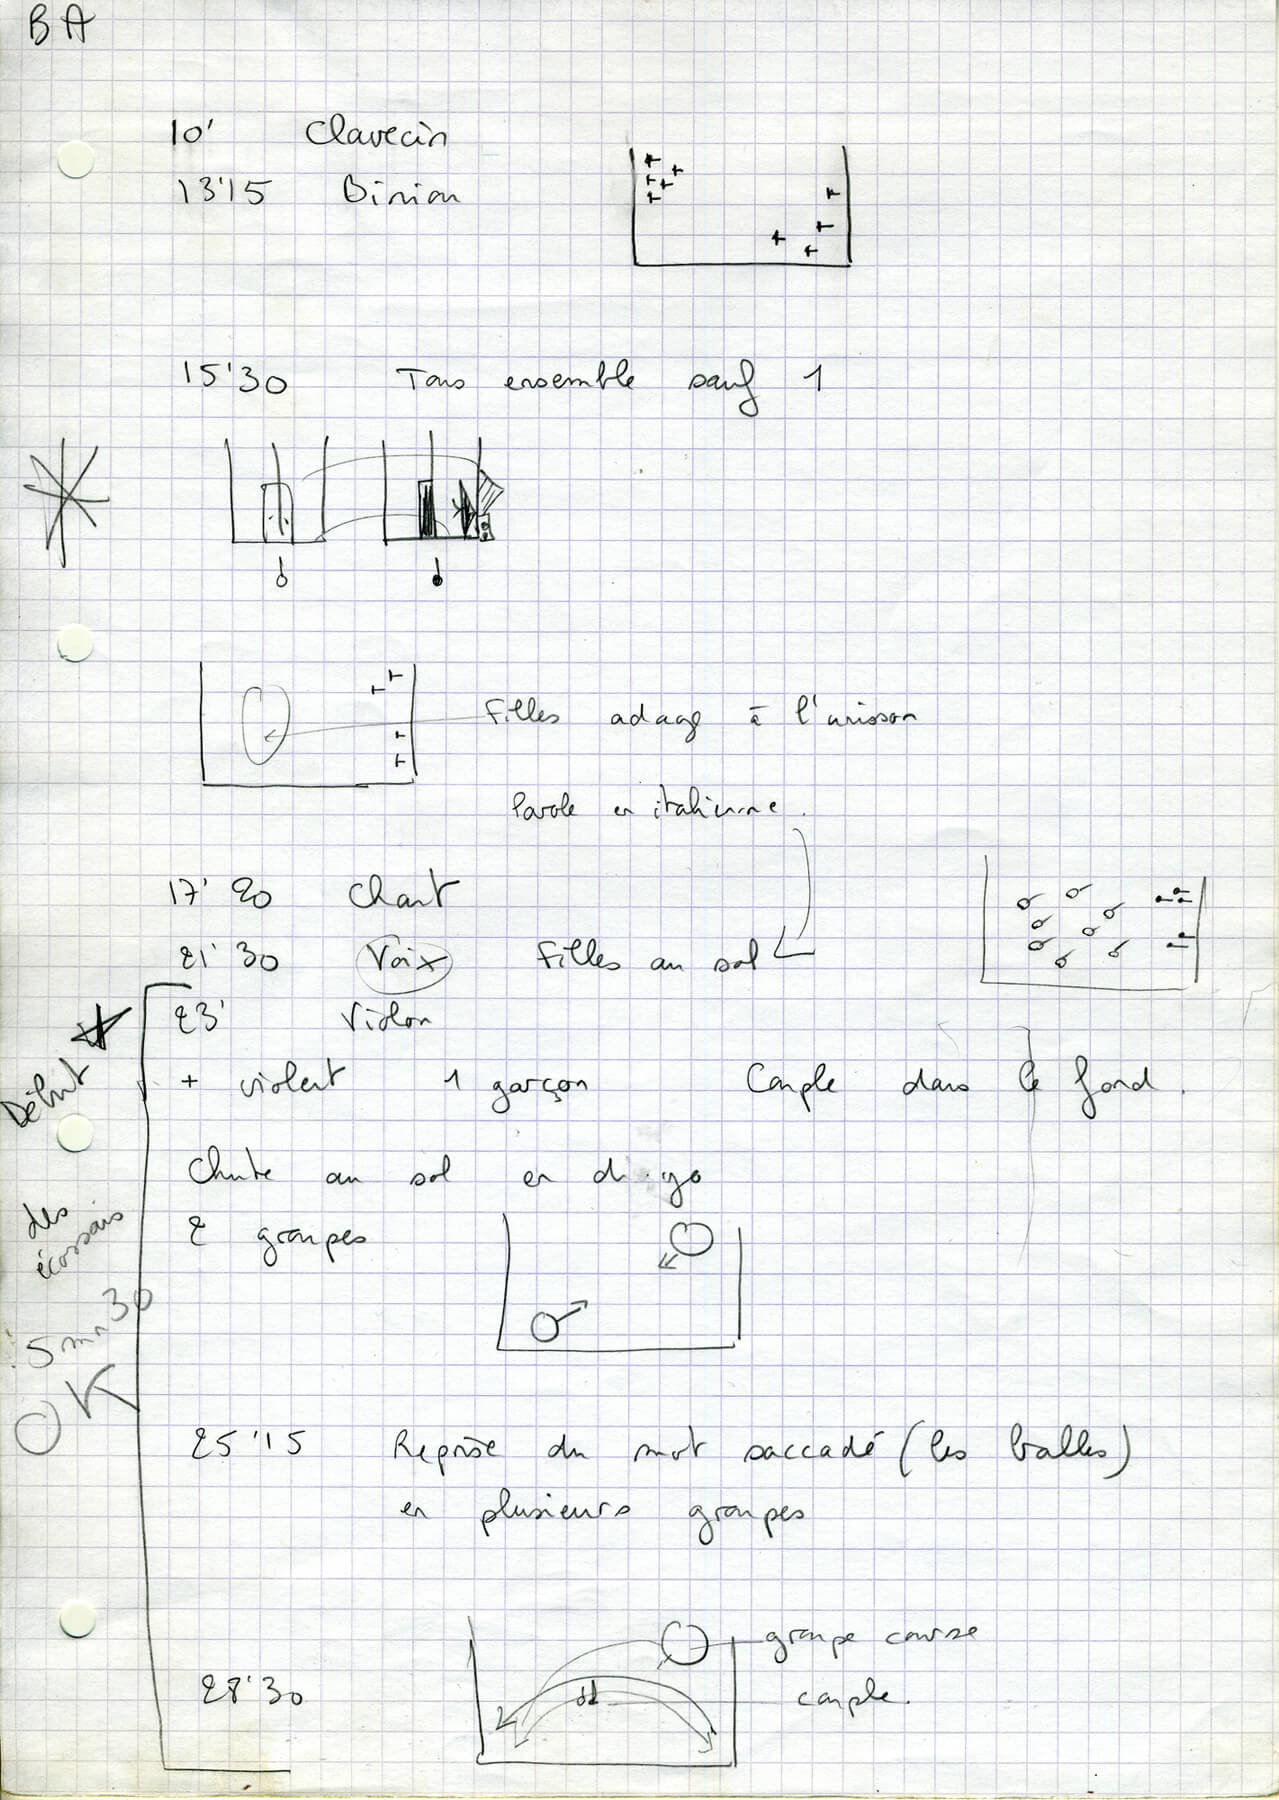 BA
10' Clavecin
13'15 Binion
15'30 Tous ensemble sauf 1
Filles adage à l'unisson
Parole en italienne.
17'20 Chant
21'30 Voix Filles au sol
23' Violon
+ violent 1 garçon Couple dans le fond.
Chute au sol en
2 groupes
Début
des
écossais
5mn30
OK
25'15 Reprise du mot saccadé (les balles)
en plusieurs groupes
groupe course
28'30 couple.